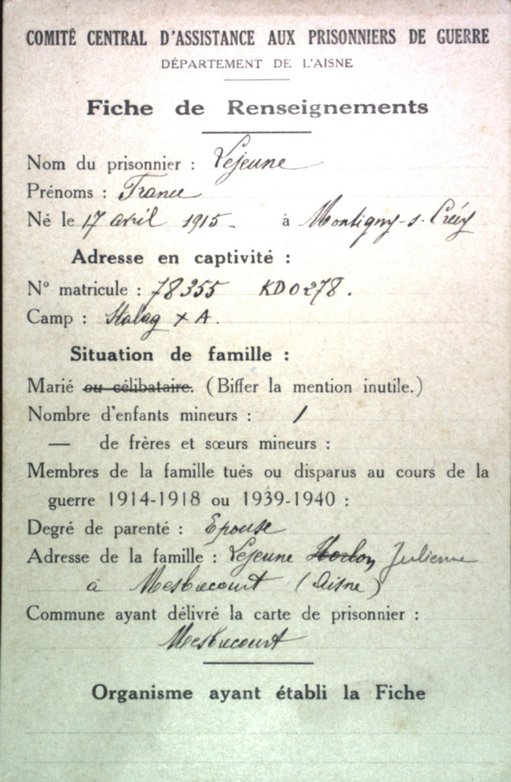 COMITÉ CENTRAL D'ASSISTANCE AUX PRISONNIERS DE GUERRE
DÉPARTEMENT DE L'AISNE
Fiche de Renseignements
Nom du prisonnier : Lejeune
Prénoms : France
Né le 17 avril 1915. à Montigny-s. Crécy
Adresse en captivité :
N° matricule : 78355 KD0278.
Camp : Stalag X A.
Situation de famille :
Marié ou célibataire. (Biffer la mention inutile.)
Nombre d'enfants mineurs : 1
— de frères et sœurs mineurs :
Membres de la famille tués ou disparus au cours de la
guerre 1914-1918 ou 1939-1940 :
Degré de parenté : Epouse
Adresse de la famille : Lejeune Julienne
à Mesbrecourt (Aisne)
Commune ayant délivré la carte de prisonnier :
Mesbrecourt
Organisme ayant établi la Fiche